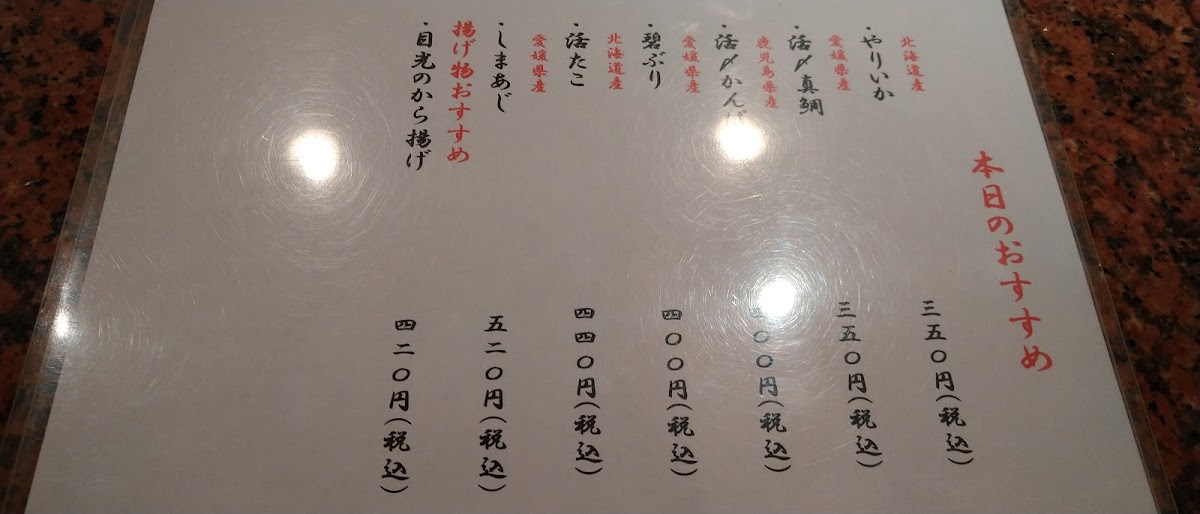 本日のおすすめ
北海道産
・やりいか 三五〇円(税込)
愛媛県産
・活〆真鯛 三五〇円(税込)
鹿児島県産
・活〆かん 〇〇円(税込)
愛媛県産
・碧ぶり 四〇〇円(税込)
北海道産
・活たこ 四四〇円(税込)
愛媛県産
・しまあじ 五二〇円(税込)
揚げ物おすすめ
・目光のから揚げ 四二〇円(税込)